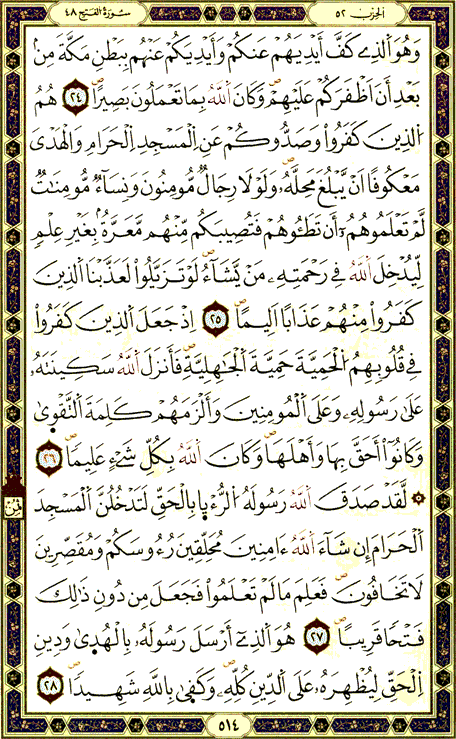 الحزب ٥٢
سُورَةُ الْفَتْحِ ٤٨
وَهُوَ اَلذِے كَفَّ أَيْدِيَهُمْ عَنكُمْ وَأَيْدِيَكُمْ عَنْهُم بِبَطْنِ مَكَّةَ مِنۢ
بَعْدِ أَنْ أَظْفَرَكُمْ عَلَيْهِمْۖ وَكَانَ اَللَّهُ بِمَا تَعْمَلُونَ بَصِيراًۖ ٢٤ هُمُ
اُلذِينَ كَفَرُواْ وَصَدُّوكُمْ عَنِ اِلْمَسْجِدِ اِلْحَرَامِ وَالْهَدْيَ
مَعْكُوفاً اَنْ يَّبْلُغَ مَحِلَّهُۥۖ وَلَوْلَا رِجَالٌ مُّومِنُونَ وَنِسَآءٌ مُّومِنَٰتٌ
لَّمْ تَعْلَمُوهُمُۥٓ أَن تَطَـُٔوهُمْ فَتُصِيبَكُم مِّنْهُم مَّعَرَّةُۢ بِغَيْرِ عِلْمٍ
لِّيُدْخِلَ اَللَّهُ فِے رَحْمَتِهِۦ مَنْ يَّشَآءُۖ لَوْ تَزَيَّلُواْ لَعَذَّبْنَا اَلذِينَ
كَفَرُواْ مِنْهُمْ عَذَاباً اَلِيماًۖ ٢٥ اِذْ جَعَلَ اَلذِينَ كَفَرُواْ
فِے قُلُوبِهِمُ اُلْحَمِيَّةَ حَمِيَّةَ اَلْجَٰهِلِيَّةِۖ فَأَنزَلَ اَللَّهُ سَكِينَتَهُۥ
عَلَىٰ رَسُولِهِۦ وَعَلَى اَلْمُومِنِينَ وَأَلْزَمَهُمْ كَلِمَةَ اَلتَّقْوۭىٰ
وَكَانُوٓاْ أَحَقَّ بِهَا وَأَهْلَهَاۖ وَكَانَ اَللَّهُ بِكُلِّ شَےْءٍ عَلِيماًۖ ٢٦
۞ لَّقَدْ صَدَقَ اَللَّهُ رَسُولَهُ اُلرُّءْيۭا بِالْحَقِّ لَتَدْخُلُنَّ اَلْمَسْجِدَ
اَلْحَرَامَ إِن شَآءَ اَللَّهُ ءَامِنِينَ مُحَلِّقِينَ رُءُوسَكُمْ وَمُقَصِّرِينَ
لَا تَخَافُونَۖ فَعَلِمَ مَا لَمْ تَعْلَمُواْ فَجَعَلَ مِن دُونِ ذَٰلِكَ
فَتْحاً قَرِيباًۖ ٢٧ هُوَ اَلذِےٓ أَرْسَلَ رَسُولَهُۥ بِالْهُدۭىٰ وَدِينِ
اِلْحَقِّ لِيُظْهِرَهُۥ عَلَى اَلدِّينِ كُلِّهِۦۖ وَكَفۭىٰ بِاللَّهِ شَهِيداًۖ ٢٨
ثمن
٥١٤